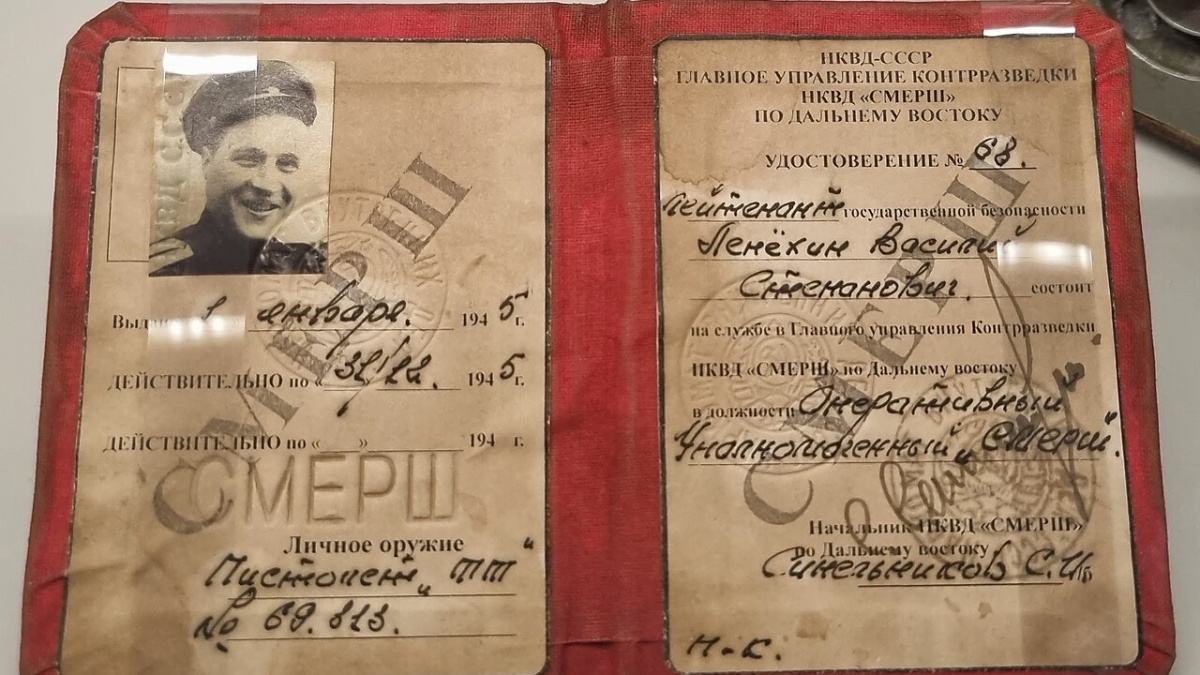 Выдано 1 января. 1945 г.
ДЕЙСТВИТЕЛЬНО по «31/12. 1945 г.
ДЕЙСТВИТЕЛЬНО по « » 194 г.
СМЕРШ
СМЕРШ
Личное оружие
Пистолет „ТТ"
№ 69.813.
НКВД-СССР
ГЛАВНОЕ УПРАВЛЕНИЕ КОНТРРАЗВЕДКИ
НКВД «СМЕРШ»
ПО ДАЛЬНЕМУ ВОСТОКУ
УДОСТОВЕРЕНИЕ № 68.
Лейтенант государственной безопасности
Пенёхин Василий
Степанович. состоит
на службе в Главного управления Контрразведки
НКВД «СМЕРШ» по Дальнему востоку
в должности Оперативный
Уполномоченный „Смерш".
СМЕРШ
Начальник НКВД «СМЕРШ»
по Дальнему востоку
Синельников С.И.
Н-К.